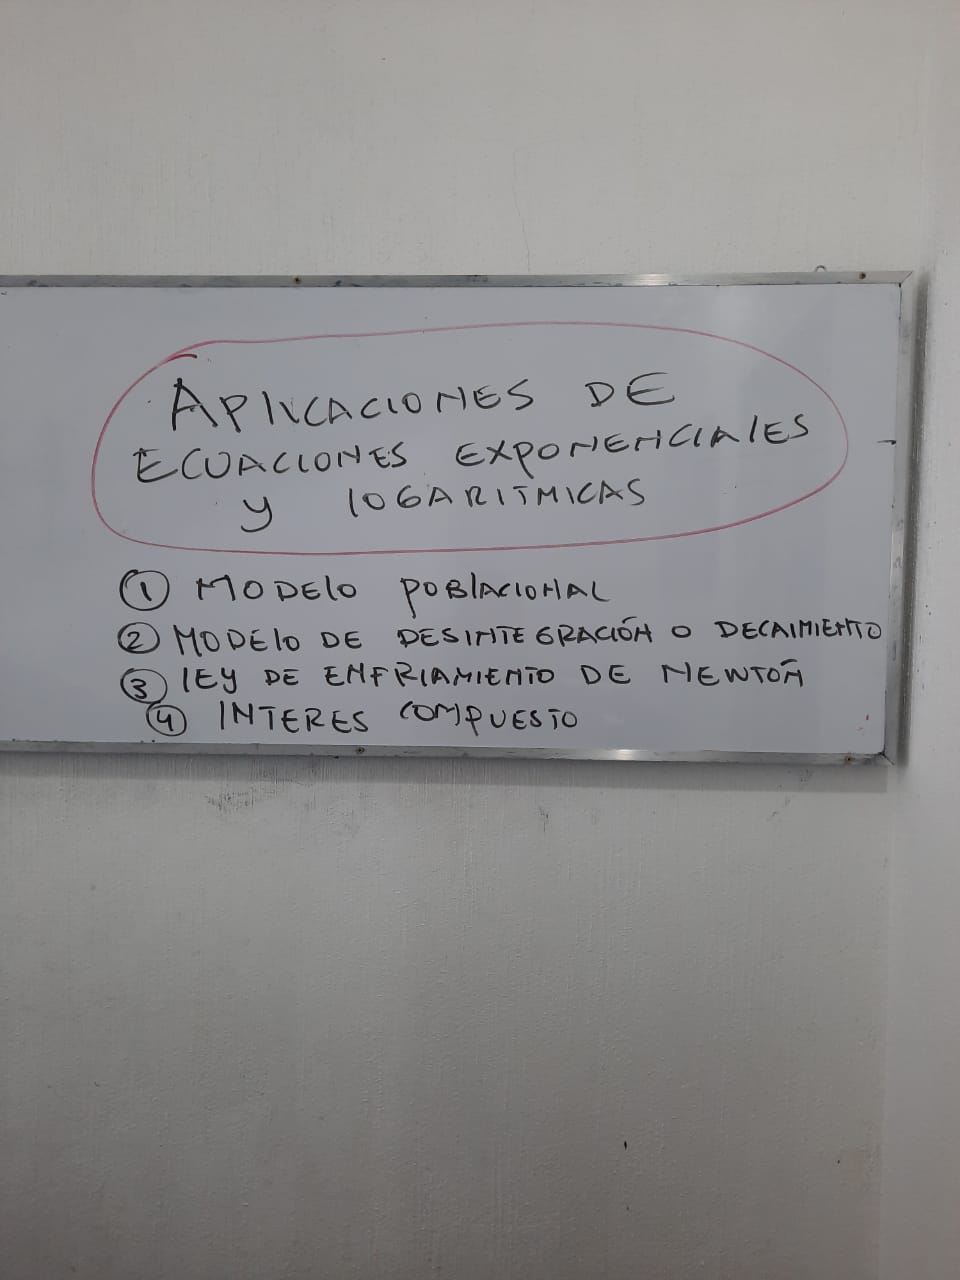 APLICACIONES DE
ECUACIONES EXPONENCIALES
y LOGARITMICAS
① MODELO POBLACIONAL
② MODELO DE DESINTEGRACIÓN O DECAIMIENTO
③ LEY DE ENFRIAMIENTO DE NEWTON
④ INTERES COMPUESTO